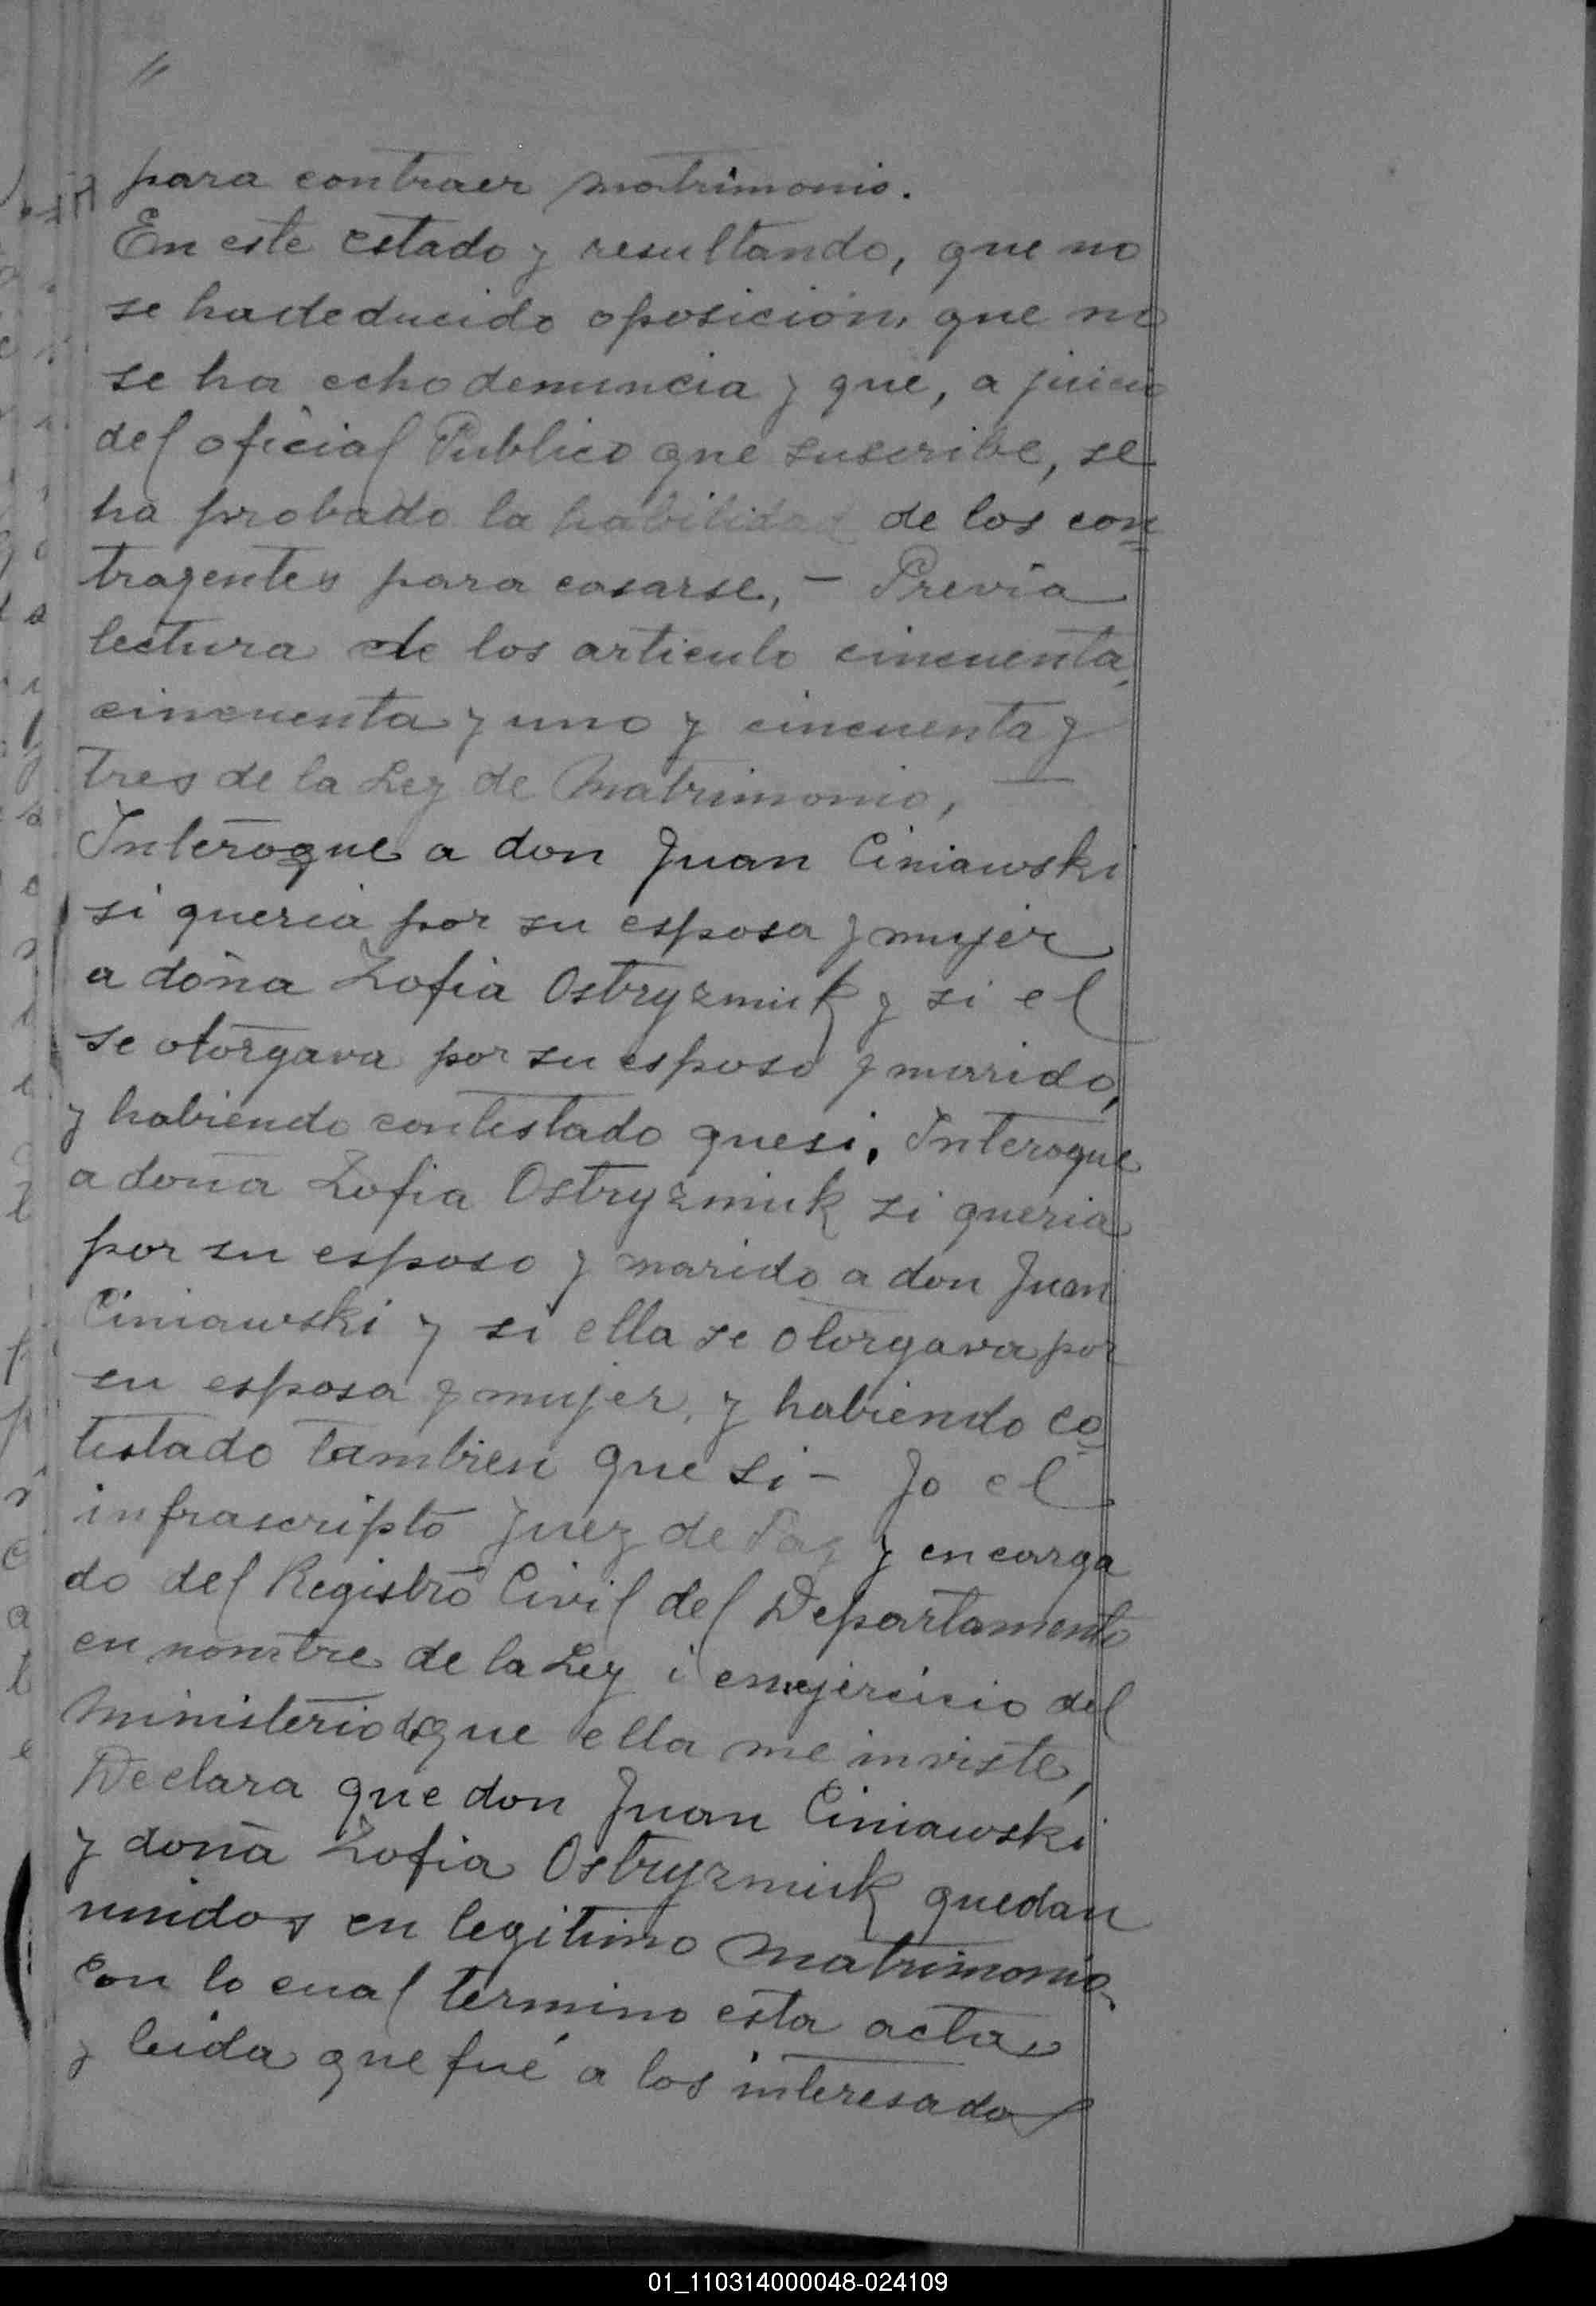 para contraer matrimonio.
En este estado y resultando, que no
se ha deducido oposición, que no
se ha echo denuncia y que, a juicio
del oficial Publico que suscribe, se
ha probado la habilidad de los con
trayentes para casarse, – Previa
lectura de los articulo cincuenta,
cincuenta y uno y cincuenta y
tres de la Ley de Matrimonio, —
Interogue a don Juan Ciniawski
si queria por su esposa y mujer
a doña Zofia Ostryzmiuk y si el
se otorgava por su esposo y marido,
y habiendo contestado que si. Interogue
a doña Zofia Ostryzmiuk si queria
por su esposo y marido a don Juan
Ciniawski y si ella se otorgava por
su esposa y mujer, y habiendo co
testado tambien que si – Jo el
infrascripto Juez de Paz y encarga
do del Registro Civil del Departamento
en nombre de la Ley i en ejercicio del
Ministerio de que ella me inviste,
Declara que don Juan Ciniawski
y doña Zofia Ostryzmiuk quedan
unidos en legitimo matrimonio.
Con lo cual termino esta acta
y leida que fué a los interesados
01_110314000048-024109